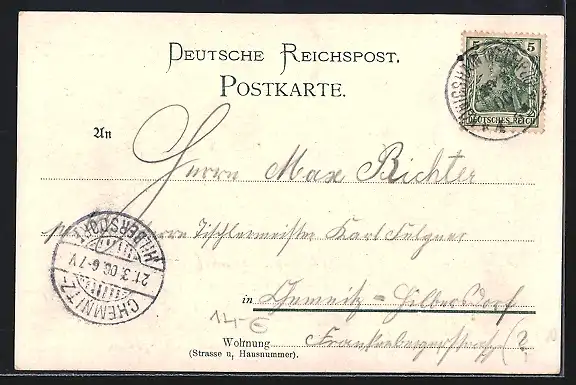 DEUTSCHE REICHSPOST.
POSTKARTE.
5 5
DEUTSCHES REICH
An
Herrn Max Richter
Herrn Tischlermeister Karl Fulgner
CHEMNITZ-HILBERSDORF
21.3.03. 6-7 V
in Chemnitz=Hilbersdorf
14-€
Wohnung Frankenbergerstraße (?
(Strasse u. Hausnummer).